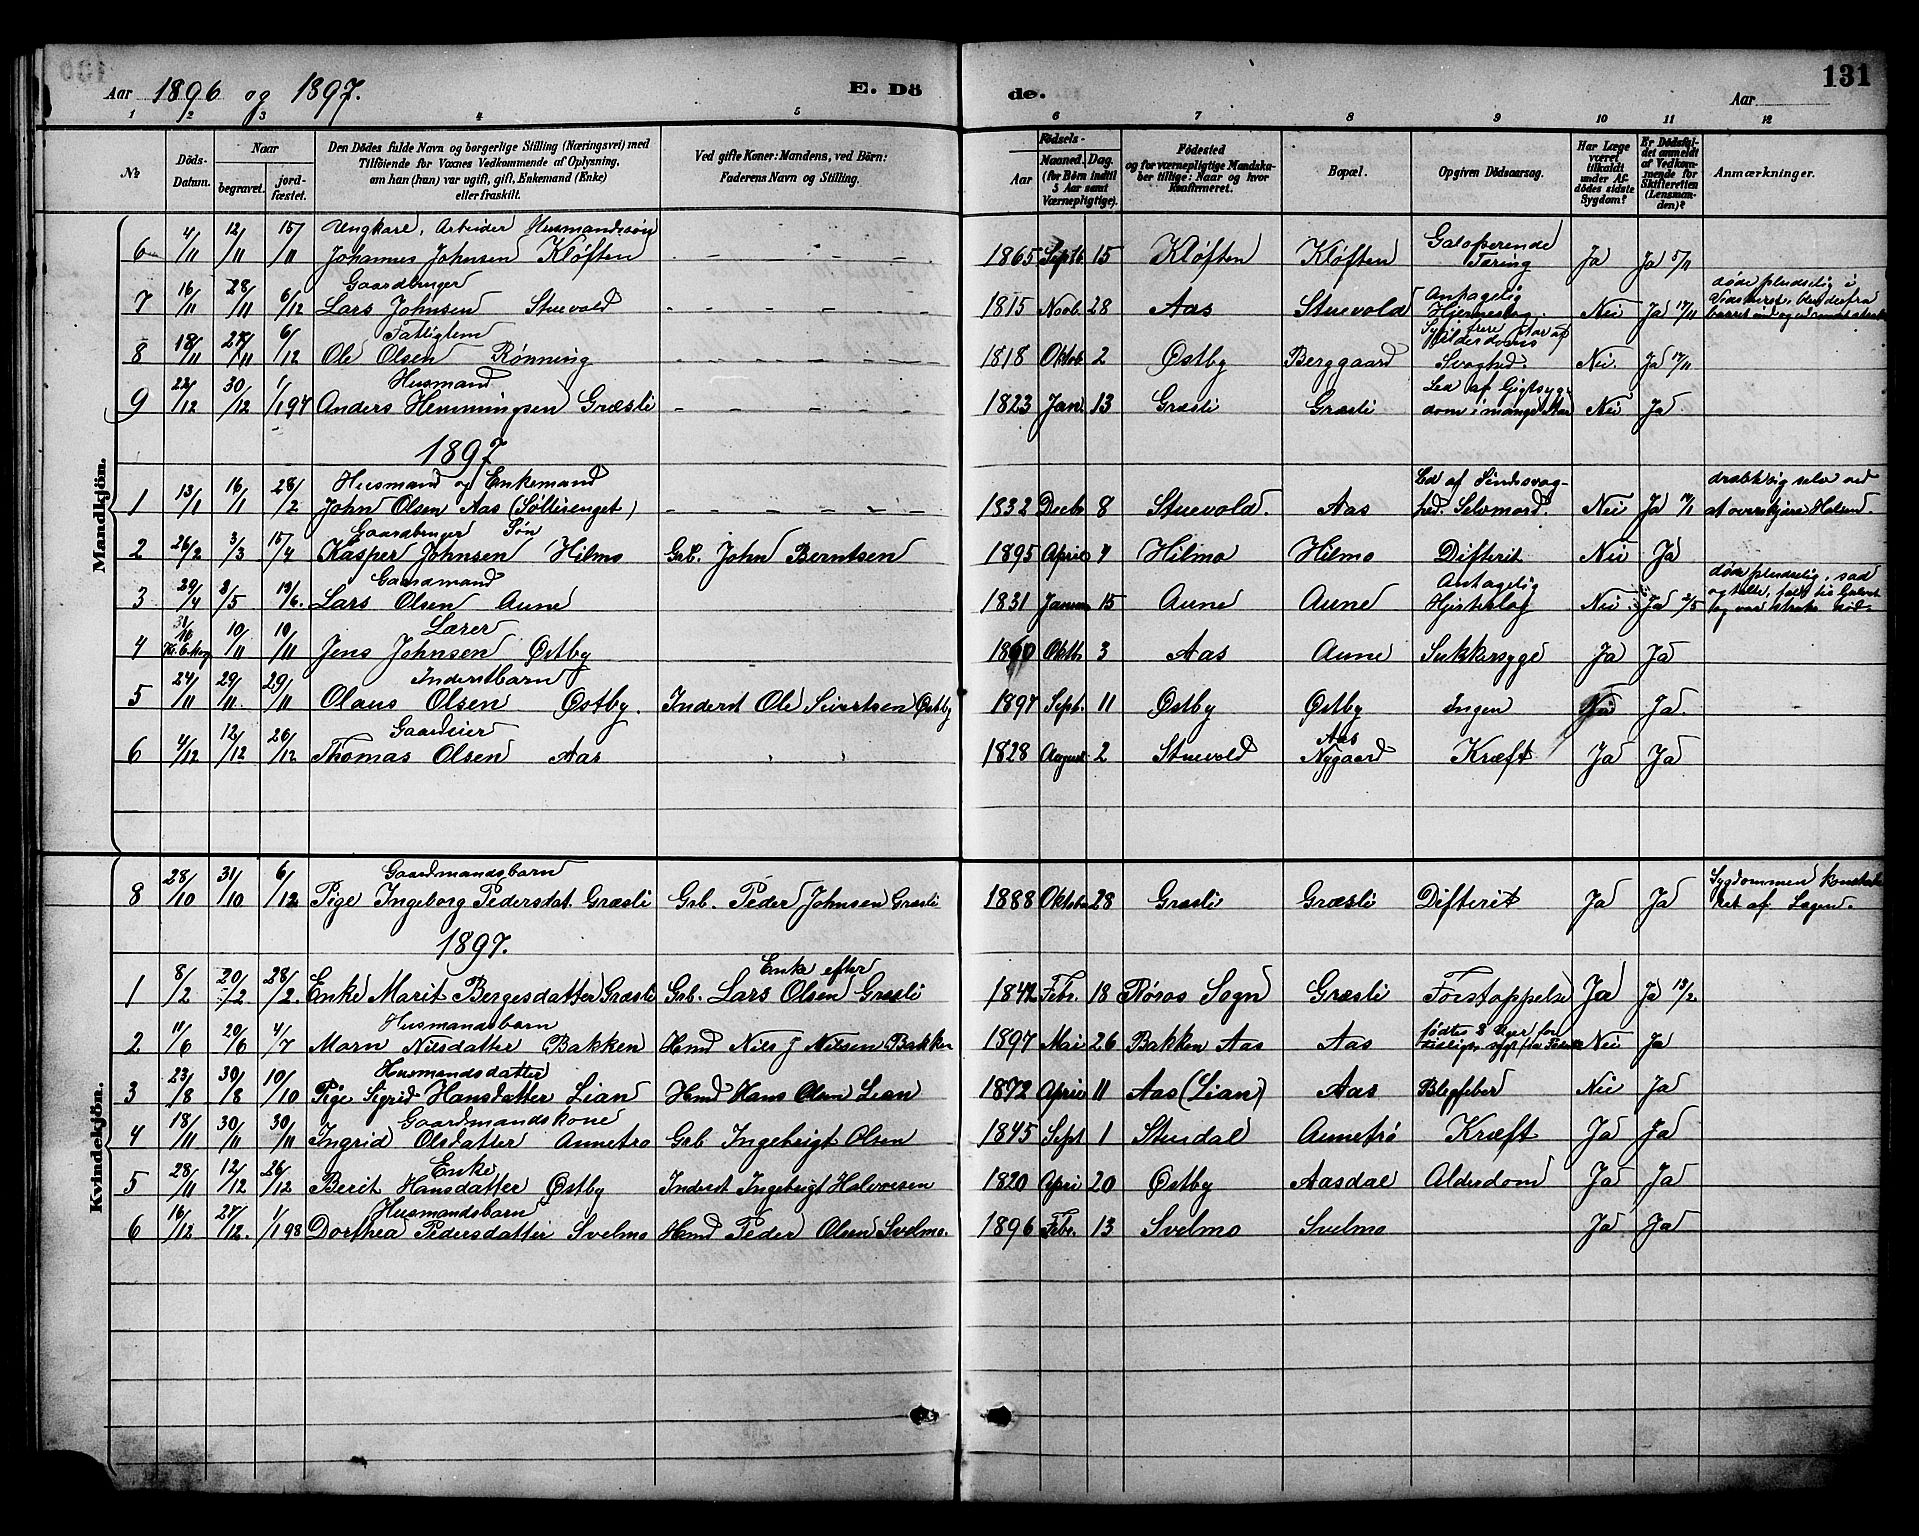 131
Aar 1896 og 1897. E. Dö de. Aar
1 2 3 4 5 6 7 8 9 10 11 12
№ Döds-Datum. Naar begravet. jordfæstet. Den Dödes fulde Navn og borgerlige Stilling (Næringsvei) med Tilföiende for Voxnes Vedkommende af Oplysning, om han (hun) var ugift, gift, Enkemand (Enke) eller fraskilt. Ved gifte Koner: Mandens, ved Börn: Faderens Navn og Stilling. Födsels- Aar Maaned. Dag. (for Börn indtil 5 Aar samt Værnepligtige). Födested og for værnepligtige Mandskaber tillige: Naar og hvor Konfirmeret. Bopæl. Opgiven Dödsaarsag. Har Læge været tilkaldt under Afdödes sidste Sygdom? Er Dödsfaldet anmeldt af Vedkommende for Skifteretten (Lensmanden)? Anmærkninger.
Mandkjön.
Ungkarl, Arbeider Husmandssøn
6 4/11 12/11 15/11 Johannes Johnsen Kløften - - - - - 1865 Septb. 15 Kløften Kløften Galoperende Tæring Ja Ja 5/11
Gaardbruger
7 16/11 28/11 6/12 Lars Johnsen Stuevold - - - - - 1815 Novb. 28 Aas Stuevold Antagelig Hjerneslag. Nei Ja 17/11 døde pludselig i
Fattiglem
8 18/11 27/11 6/12 Ole Olsen Rønning - - - - - 1818 Oktob 2 Østby Berggaard Alderdoms Svaghed. Nei. Ja 17/11
Husmand
9 22/12 30/12 1/1 97 Anders Hemmingsen Græsli - - - - - 1823 Jan. 13 Græsli Græsli Led af Gigtsygdom i mange Aar Nei Ja
1897
Husmand og Enkemand
1 13/1 16/1 28/2 John Olsen Aas (Søllienget) - - - - - 1832 Decb. 8 Stuevold. Aas Led af Sindssvaghed. Selvmord. Nei Ja 14/1 selv ved at overskjære Halsen.
Gaardbruger Søn
2 26/2 3/3 15/4 Kasper Johnsen Hilmo Grb. John Berntsen 1895 April 4 Hilmo Hilmo Difterit Nei Ja
Gaardmand
3 29/4 8/5 13/6. Lars Olsen Aune 1831 Januar 15 Aune Aune Antagelig Hjerteslag Nei Ja 2/5 døde pludselig, sad og talte, faldt til Gulvet og var straks død.
Lærer
4 31/10 Kl. 6 Morg 10/11 10/11 Jens Johnsen Østby 1860 Oktb. 3 Aas Aune Sukkersyge Ja Ja
Inderstbarn
5 24/11 29/11. 29/11 Olaus Olsen Østby. Inderst Ole Sivertsen Østby 1897 Sept. 11 Østby Østby Ingen Nei Ja.
Gaardeier
6 4/12 12/12 26/12 Thomas Olsen Aas 1828 August 2 Stuevold Aas Nygaard Kræft Ja Ja
Kvindekjön.
Gaardmandsbarn
8 28/10 31/10 6/12 Pige Ingeborg Pedersdat. Græsli Grb. Peder Johnsen Græsli 1888 Oktob 28 Græsli Græsli Difterit Ja Ja Sygdommen konstateret af Lægen.
1897.
Enke efter
1 8/2 20/2 28/2. Enke Marit Bergesdatter Græsli Grb. Lars Olsen Græsli 1842 Febr. 18 Røros Sogn Græsli Forstoppelse Ja Ja 13/2.
Husmandsbarn
2 11/6 20/6 4/7 Marn Nilsdatter Bakken Hmd Nils J Nilsen Bakken 1897 Mai 26 Bakken Aas Aas fødtes 8 Uger for tidlig, Nei Ja
Husmandsdatter
3 23/8 30/8 10/10 Pige Sigrid Hansdatter Lian Hmd Hans Olsen Lian 1872 April 11 Aas (Lian) Aas Blegfeber Nei Ja
Gaardmandskone
4 18/11 30/11 30/11 Ingrid Olsdatter Aunetrø Grb Ingebrigt Olsen 1845 Sept 1 Stendal Aunetrø Kræft Ja Ja
Enke
5 28/11 12/12 26/12 Berit Hansdatter Østby Inderst Ingebrigt Halvorsen 1820 April 20 Østby Aasdal Alderdom Ja Ja
Husmandsbarn
6 16/12 27/12. 1/1 98 Dorthea Pedersdatter Svelmo Hmd Peder Olsen Svelmo. 1896 Febr. 13 Svelmo Svelmo Ja Ja